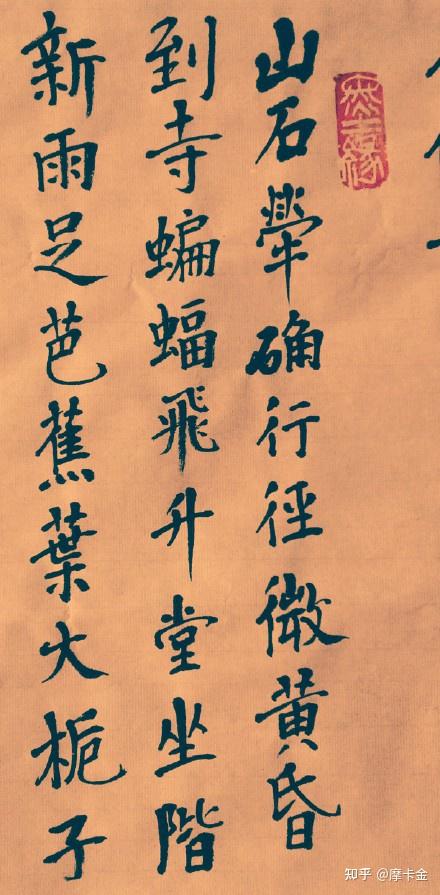 山石犖确行徑微黄昏
到寺蝙蝠飛升堂坐階
新雨足芭蕉葉大梔子
知乎 @摩卡金